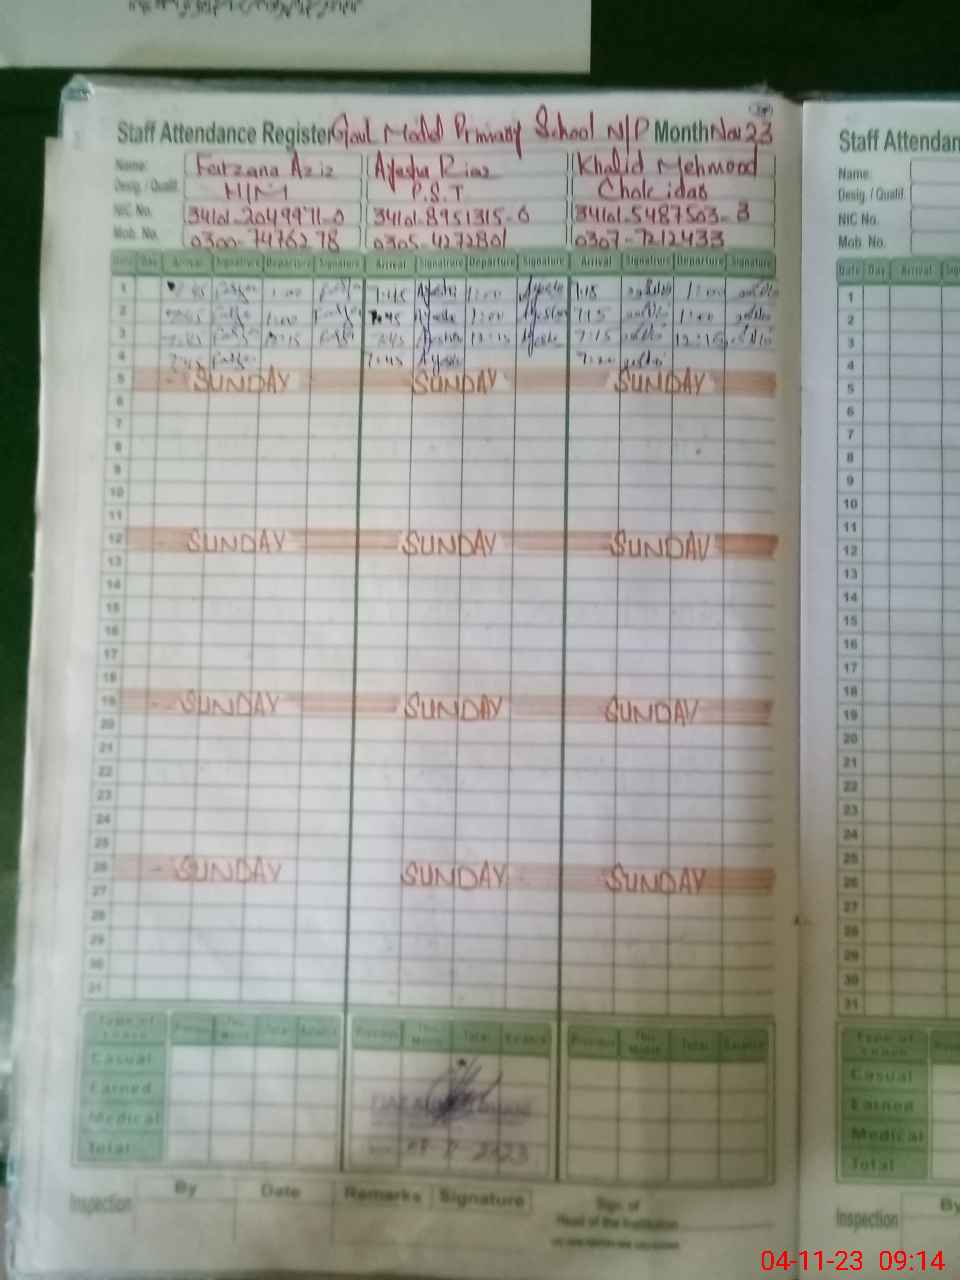 Staff Attendance Register Govt Model Primary School N/P Month Nov 23
Name: Farzana Aziz Ayesha Riaz Khalid Mehmood
Desig. / Qualif. H/M P.S.T Chokidar
NIC No. 34101-2049971-0 34101-8951315-6 34101-5487503-3
Mob. No. 0300-7476278 0305-4272801 0307-7212433
Date Day Arrival Signature Departure Signature Arrival Signature Departure Signature Arrival Signature Departure Signature
1 7:45 1:00 Ayesha 1:00 Ayesha 7:15 1:00
2 7:45 1:00 7:45 Ayesha 1:00 Ayesha 7:15 1:00
3 7:45 12:15 7:45 Ayesha 12:15 Ayesha 7:15 12:15
4 7:45 7:45 Ayesha
5 SUNDAY SUNDAY SUNDAY
6
7
8
9
10
11
12 SUNDAY SUNDAY SUNDAY
13
14
15
16
17
18
19 SUNDAY SUNDAY SUNDAY
20
21
22
23
24
25
26 SUNDAY SUNDAY SUNDAY
27
28
29
30
31
Type of Leave Previous This Month Total Balance Previous This Month Total Balance Previous This Month Total Balance
Casual
Earned
Medical
Total
2023
Inspection By Date Remarks Signature
Sign. of
Head of the Institution
Staff Attendan
Name:
Desig. / Qualif.
NIC No.
Mob. No.
Date Day Arrival
1
2
3
4
5
6
7
8
9
10
11
12
13
14
15
16
17
18
19
20
21
22
23
24
25
26
27
28
29
30
31
Type of Leave
Casual
Earned
Medical
Total
Inspection By
04-11-23 09:14